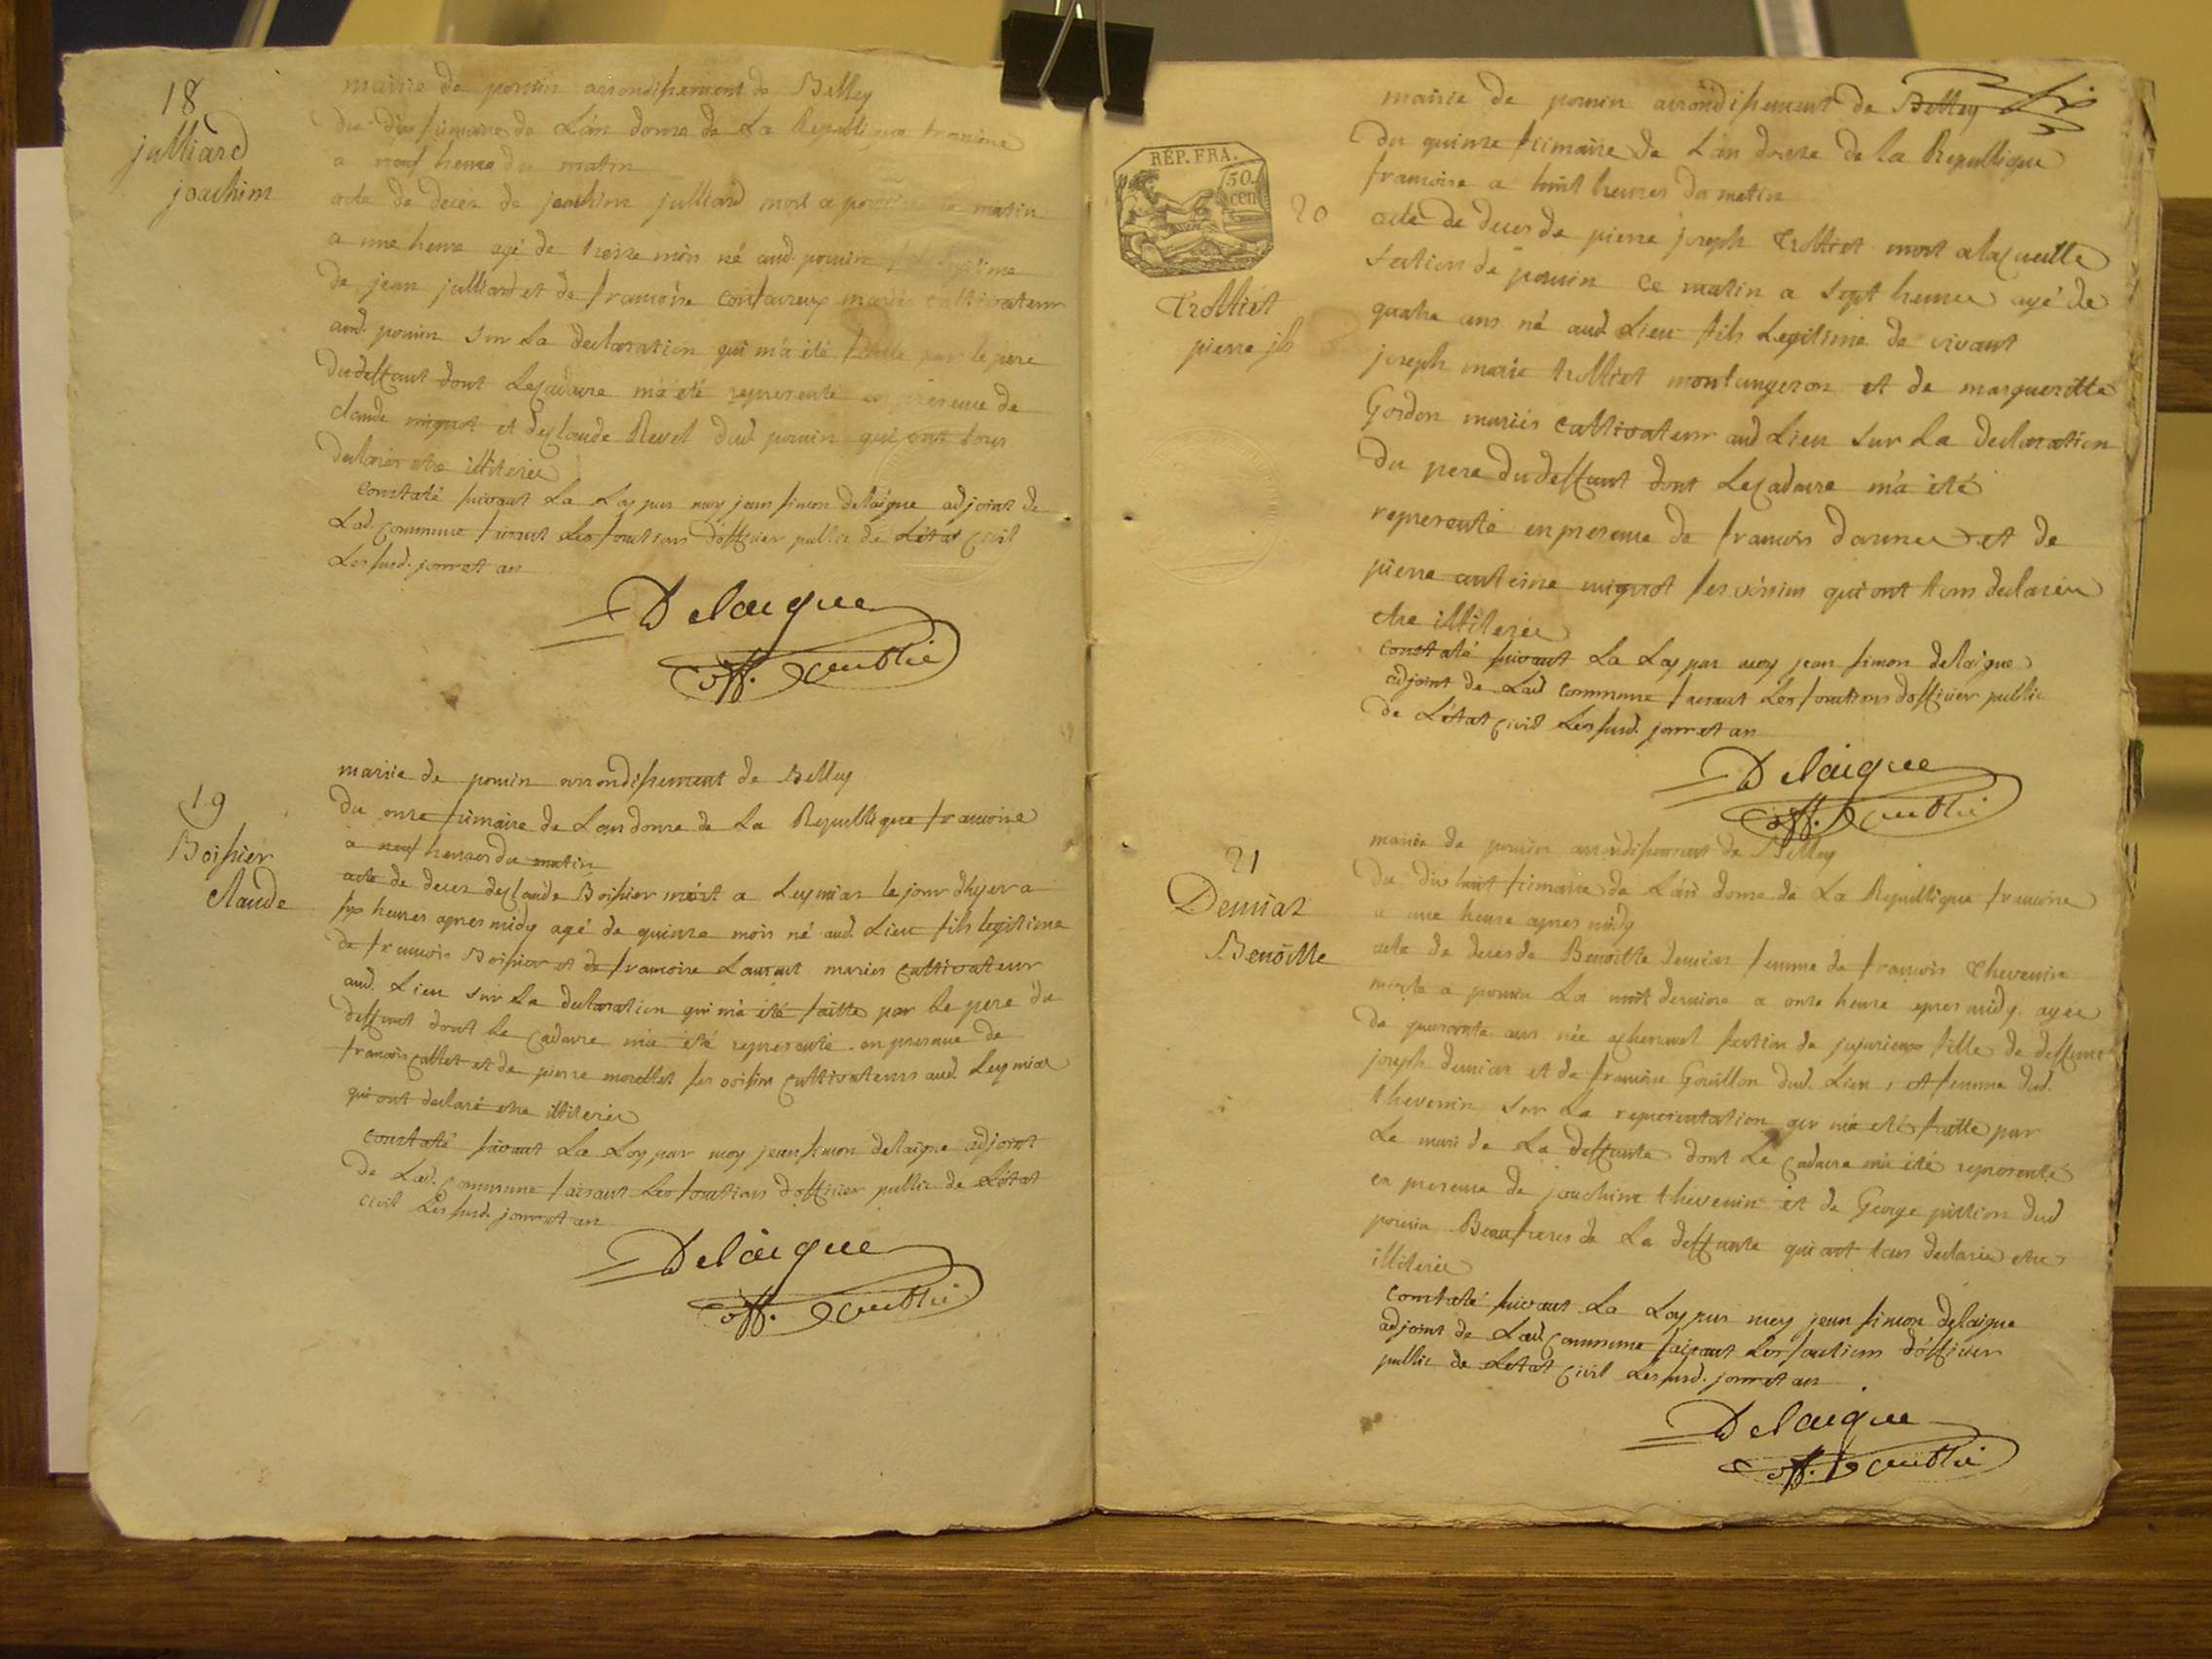 18
julliard
joachim
mairie de poncin arrondissement de Belley
du dix frimaire de L'an douze de La Republique francoise
a neuf heures du matin
acte de deces de joachim julliard mort a poncin ce matin
a une heure agé de treize mois né aud. poncin fils legitime
de jean julliard et de francoise confavreux mariés cultivateur
aud. poncin sur La declaration qui m'a été faitte par le pere
du deffunt dont Le cadavre m'a été representé en presence de
claude mignot et de claude Revel dud. poncin qui ont tous
declarés etre illiterés
constaté suivant La Loy par moy jean simon delaigue adjoint de
Lad. commune faisant Les fonctions d'officier public de L'état civil
Les susd. jour et an
Delaigue
off. public
19
Boissier
claude
mairie de poncin arrondissement de Belley
du onze frimaire de L'an douze de La Republique francoise
a neuf heures du matin
acte de deces de claude Boissier mort a Leymiat le jour d'hyer a
six heures apres midy agé de quinze mois né aud. Lieu fils legitime
de francois Boissier et de francoise Laurent mariés cultivateur
aud. Lieu sur La declaration qui m'a été faitte par Le pere du
deffunt dont Le cadavre m'a été representé en presence de
francois callet et de pierre morellet ses voisins cultivateurs aud. Leymiat
qui ont declaré etre illiterés
constaté suivant La Loy par moy jean simon delaigue adjoint
de Lad. commune faisant Les fonctions d'officier public de L'état
civil Les susd. jour et an
Delaigue
off. public
REP. FRA.
50
cen
20
Trolliet
pierre jh
mairie de poncin arrondissement de Belley
du quinze frimaire de L'an douze de la Republique
francoise a huit heures du matin
acte de deces de pierre joseph Trolliet mort a la cueille
section de poncin ce matin a sept heures agé de
quatre ans né aud. Lieu fils Legitime de vivant
joseph marie trolliet montangeron et de margueritte
Gordon mariés cultivateur aud Lieu sur La declaration
du pere du deffunt dont Le cadavre m'a été
representé en presence de francois et de
pierre antoine mignot ses voisins qui ont tous declarés
etre illiterés
constaté suivant La Loy par moy jean simon delaigue
adjoint de Lad commune faisant Les fonctions d'officier public
de L'état civil Les susd. jour et an
Delaigue
off. public
21
Demiat
Benoitte
mairie de poncin arrondissement de Belley
du dix huit frimaire de L'an douze de La Republique francoise
a une heure apres midy
acte de deces de Benoitte demiat femme de francois thevenin
morte a poncin La nuit derniere a onze heure apres midy agée
de quarante ans née a chenavel section de jujurieux fille de deffunt
joseph demiat et de francoise Gouillon dud. Lieu, et femme dud.
thevenin sur La representation qui m'a été faitte par
Le mari de La deffunte dont Le cadavre m'a été representé
en presence de joachim thevenin et de George pittion dud
poncin Beaufreres de La deffunte qui ont tous declarés etre
illiterés
constaté suivant La Loy par moy jean simon delaigue
adjoint de Lad. commune faisant Les fonctions d'officier
public de L'état civil Les susd. jour et an
Delaigue
off. public